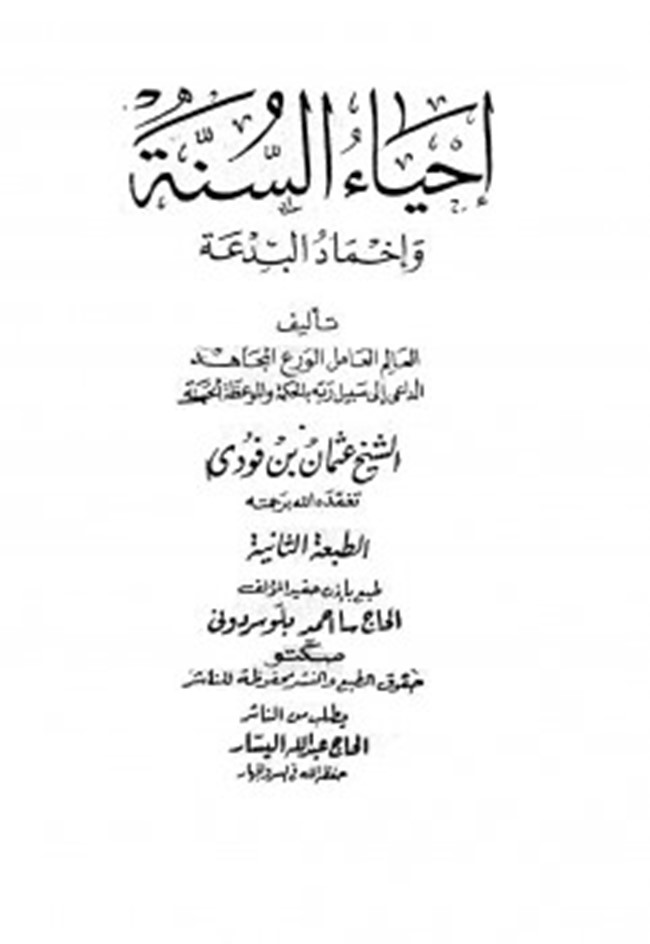 إحياء السنة
وَإخْمَادُ البِدْعَة
تأليف
العَالِم العَامل الورع المجَاهد
الداعى إلى سَبيل رَبّه بالحكمَة والموعظَة الحسنَة
الشيخ عثمان بن فودى
تغمّده الله برحمته
الطبعة الثانية
طبع بإذن حفيد المؤلف
الحاج سا احمد بلو سردونى
صكتو
حقوق الطبع والنشر محفوظة للناشر
يطلب من الناشر
الحاج عبد الله اليسار
حفظه الله فى